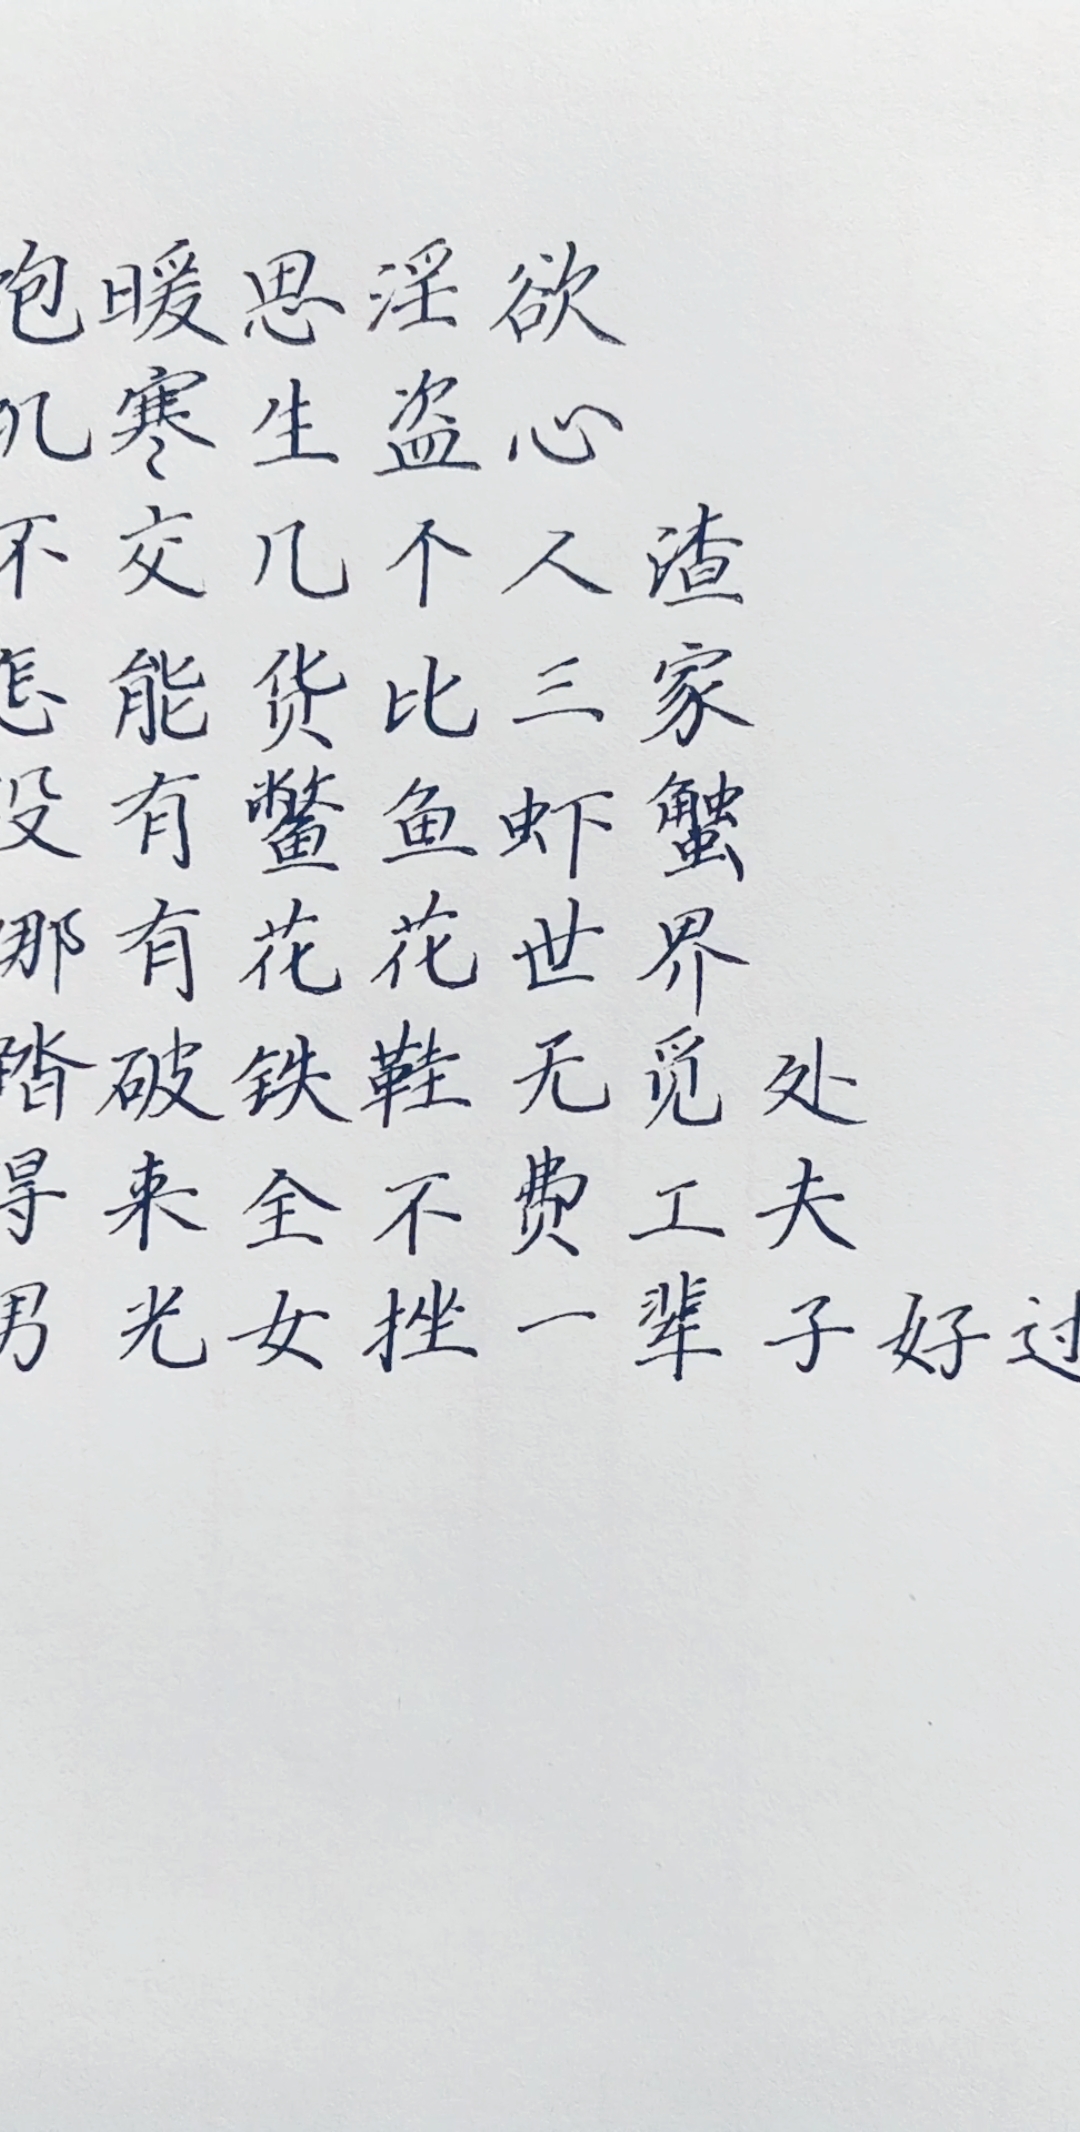 饱暖思淫欲
饥寒生盗心
不交几个人渣
怎能货比三家
没有鳖鱼虾蟹
哪有花花世界
踏破铁鞋无觅处
得来全不费工夫
男光女挫一辈子好过